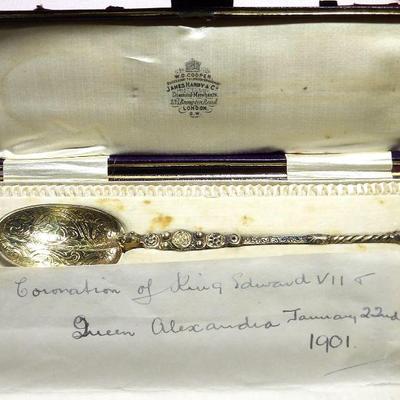 W.G. COOPER
JAMES HARDY & Co
Diamond Merchants
Brompton Road
LONDON
S.W.
Coronation of King Edward VII &
Queen Alexandra January 22nd
1901.